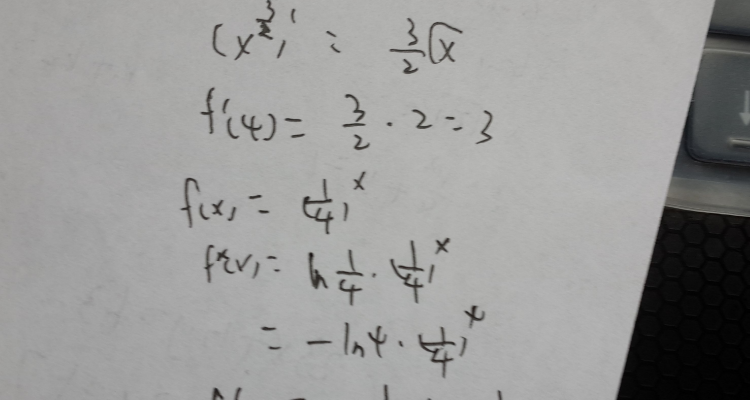 (x^{3/2})' = 3/2 √x
f'(4) = 3/2 · 2 = 3
f(x) = (1/4)^x
f'(x) = ln 1/4 · (1/4)^x
= -ln4 · (1/4)^x